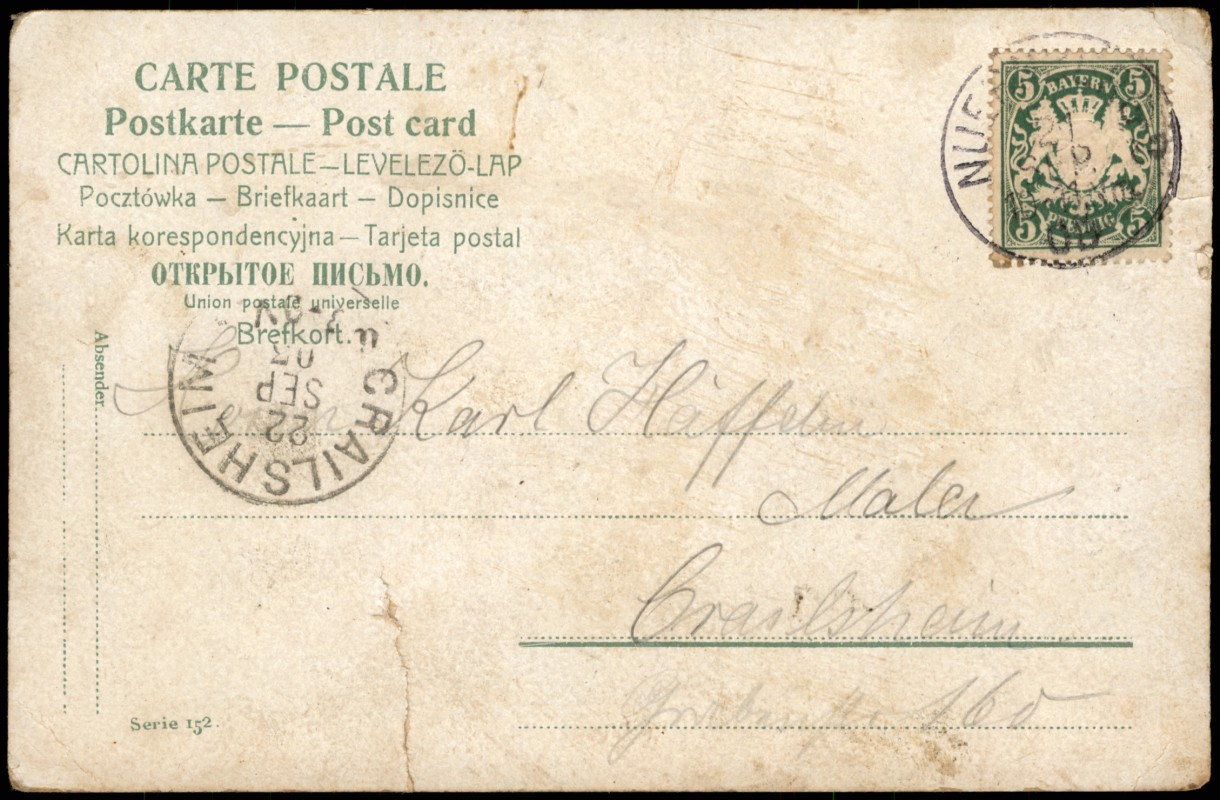 CARTE POSTALE
Postkarte — Post card
CARTOLINA POSTALE — LEVELEZŐ-LAP
Pocztówka — Briefkaart — Dopisnice
Karta korespondencyjna — Tarjeta postal
ОТКРЫТОЕ ПИСЬМО.
Union postale universelle
Brefkort.
5 BAYERN 5
5 PFENNIG 5
CRAILSHEIM
22
SEP
03
Absender
Karl
Maler
Crailsheim
Serie 152.